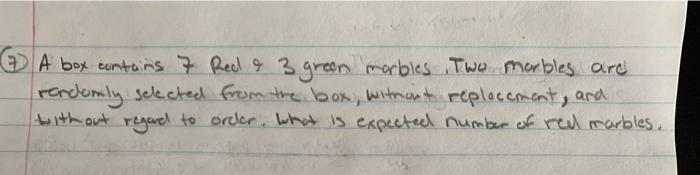 ⑦ A box contains 7 Red & 3 green marbles. Two marbles are
randomly selected from the box, without replacement, and
without regard to order. What is expected number of red marbles.